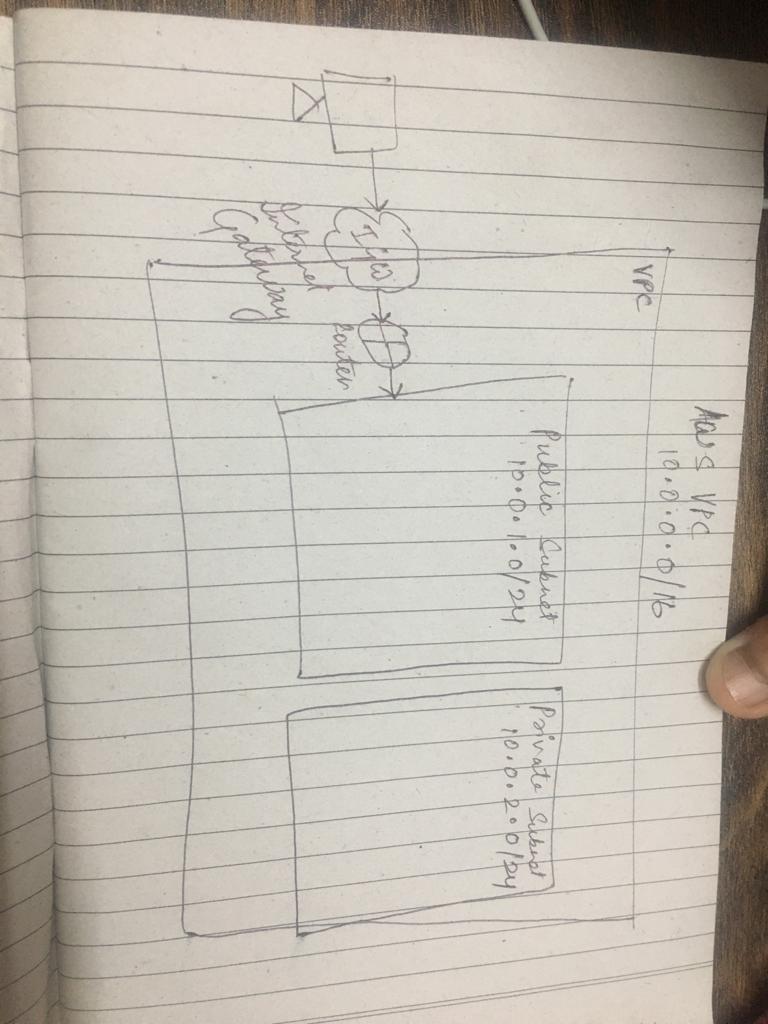 AWS VPC
10.0.0.0/16
VPC
Public Subnet
10.0.1.0/24
Private Subnet
10.0.2.0/24
IGW
Router
Internet
Gateway